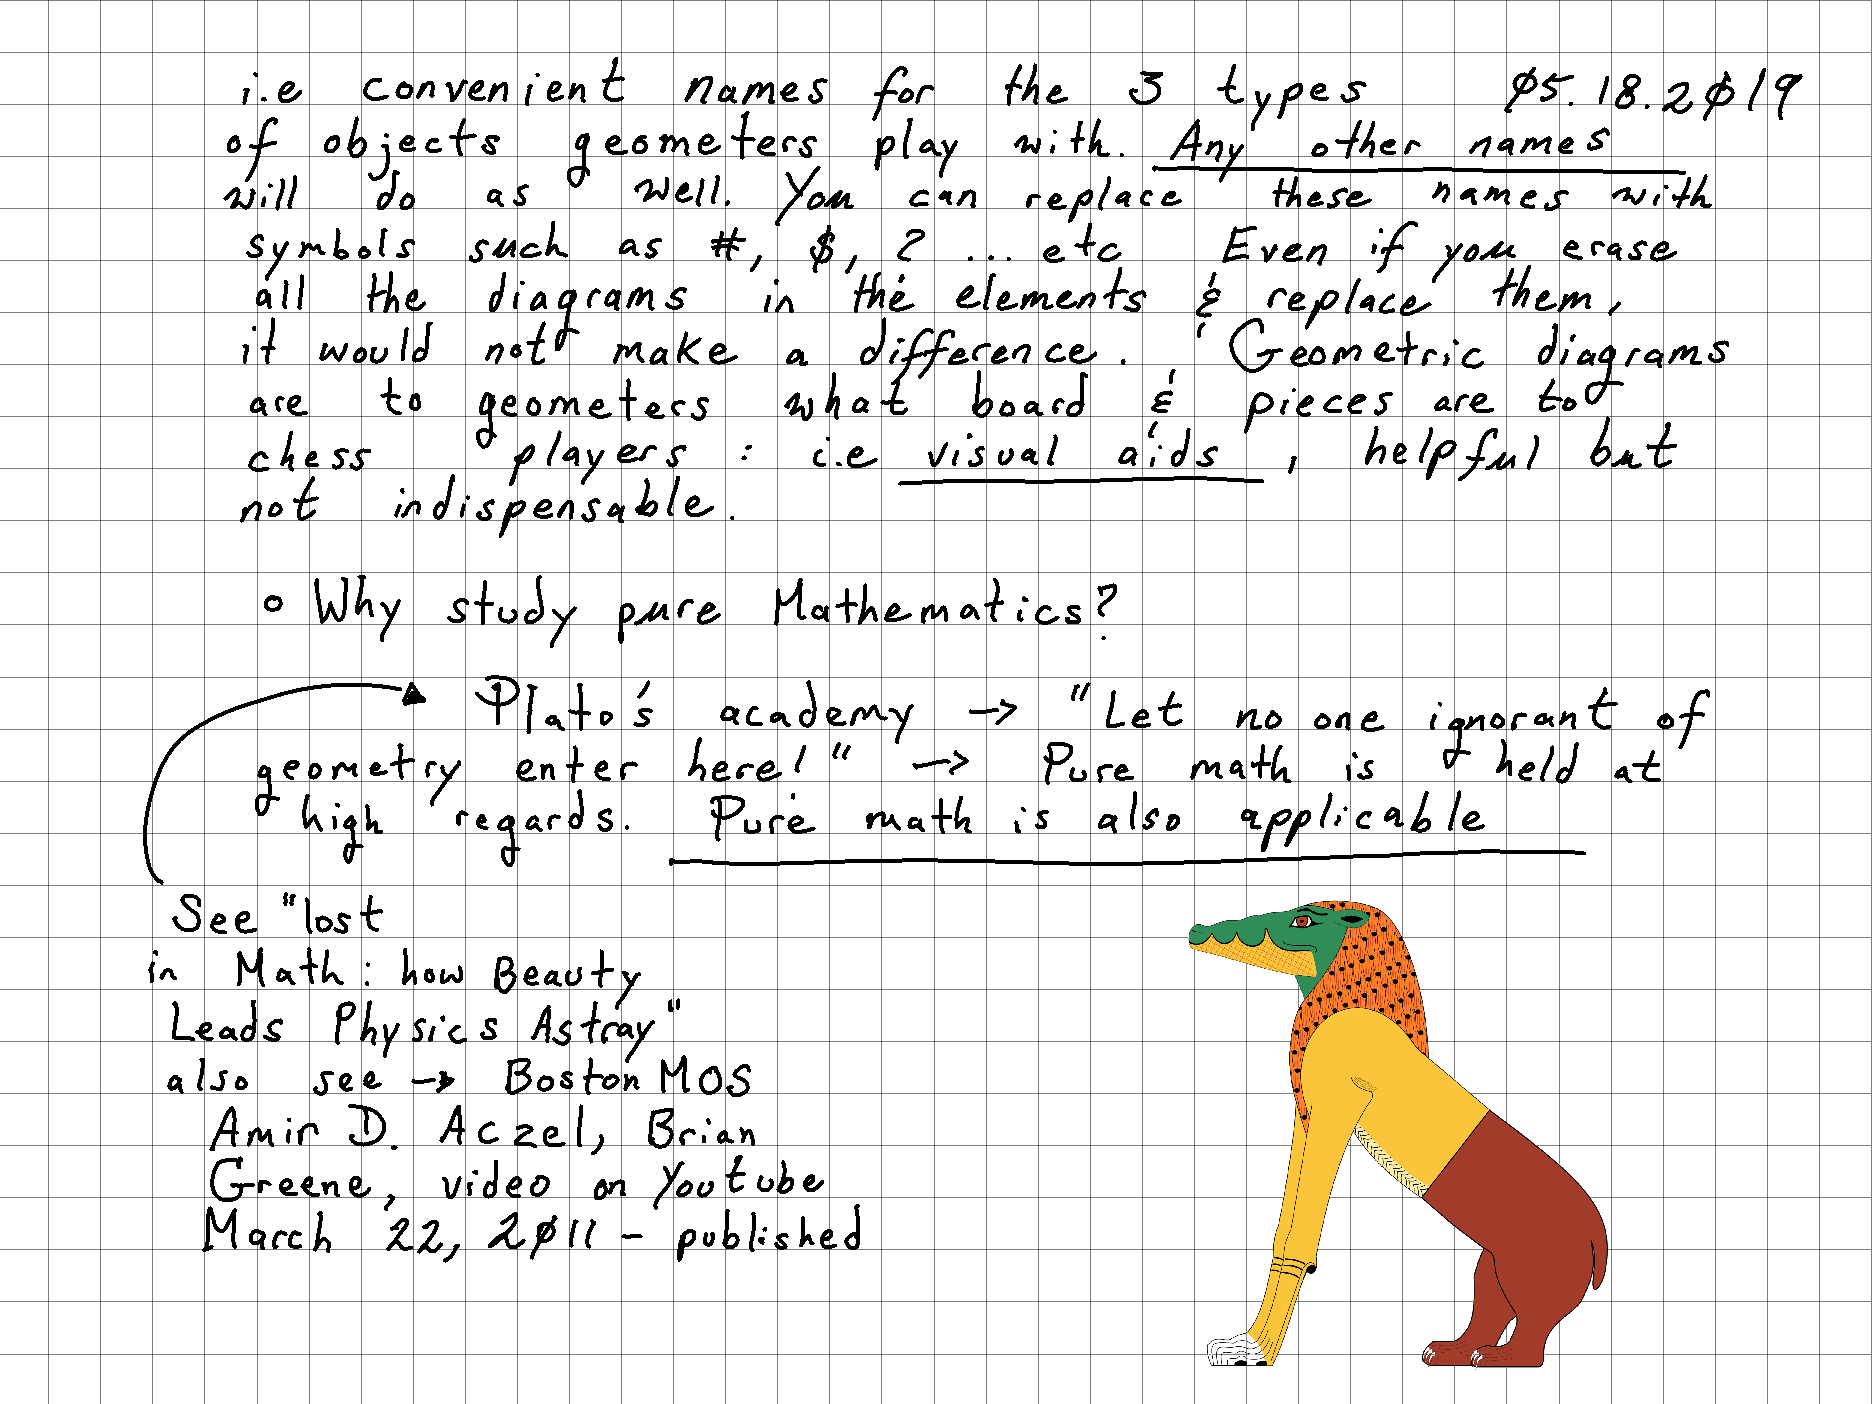 i.e convenient names for the 3 types 05.18.2019
of objects geometers play with. Any other names
will do as well. You can replace these names with
symbols such as #, $, ? ... etc Even if you erase
all the diagrams in the elements & replace them,
it would not make a difference. Geometric diagrams
are to geometers what board & pieces are to
chess players : i.e visual aids, helpful but
not indispensable.
o Why study pure Mathematics?
Plato's academy → "Let no one ignorant of
geometry enter here!" → Pure math is held at
high regards. Pure math is also applicable
See "lost
in Math: how Beauty
Leads Physics Astray"
also see → Boston MOS
Amir D. Aczel, Brian
Greene, video on Youtube
March 22, 2011 - published